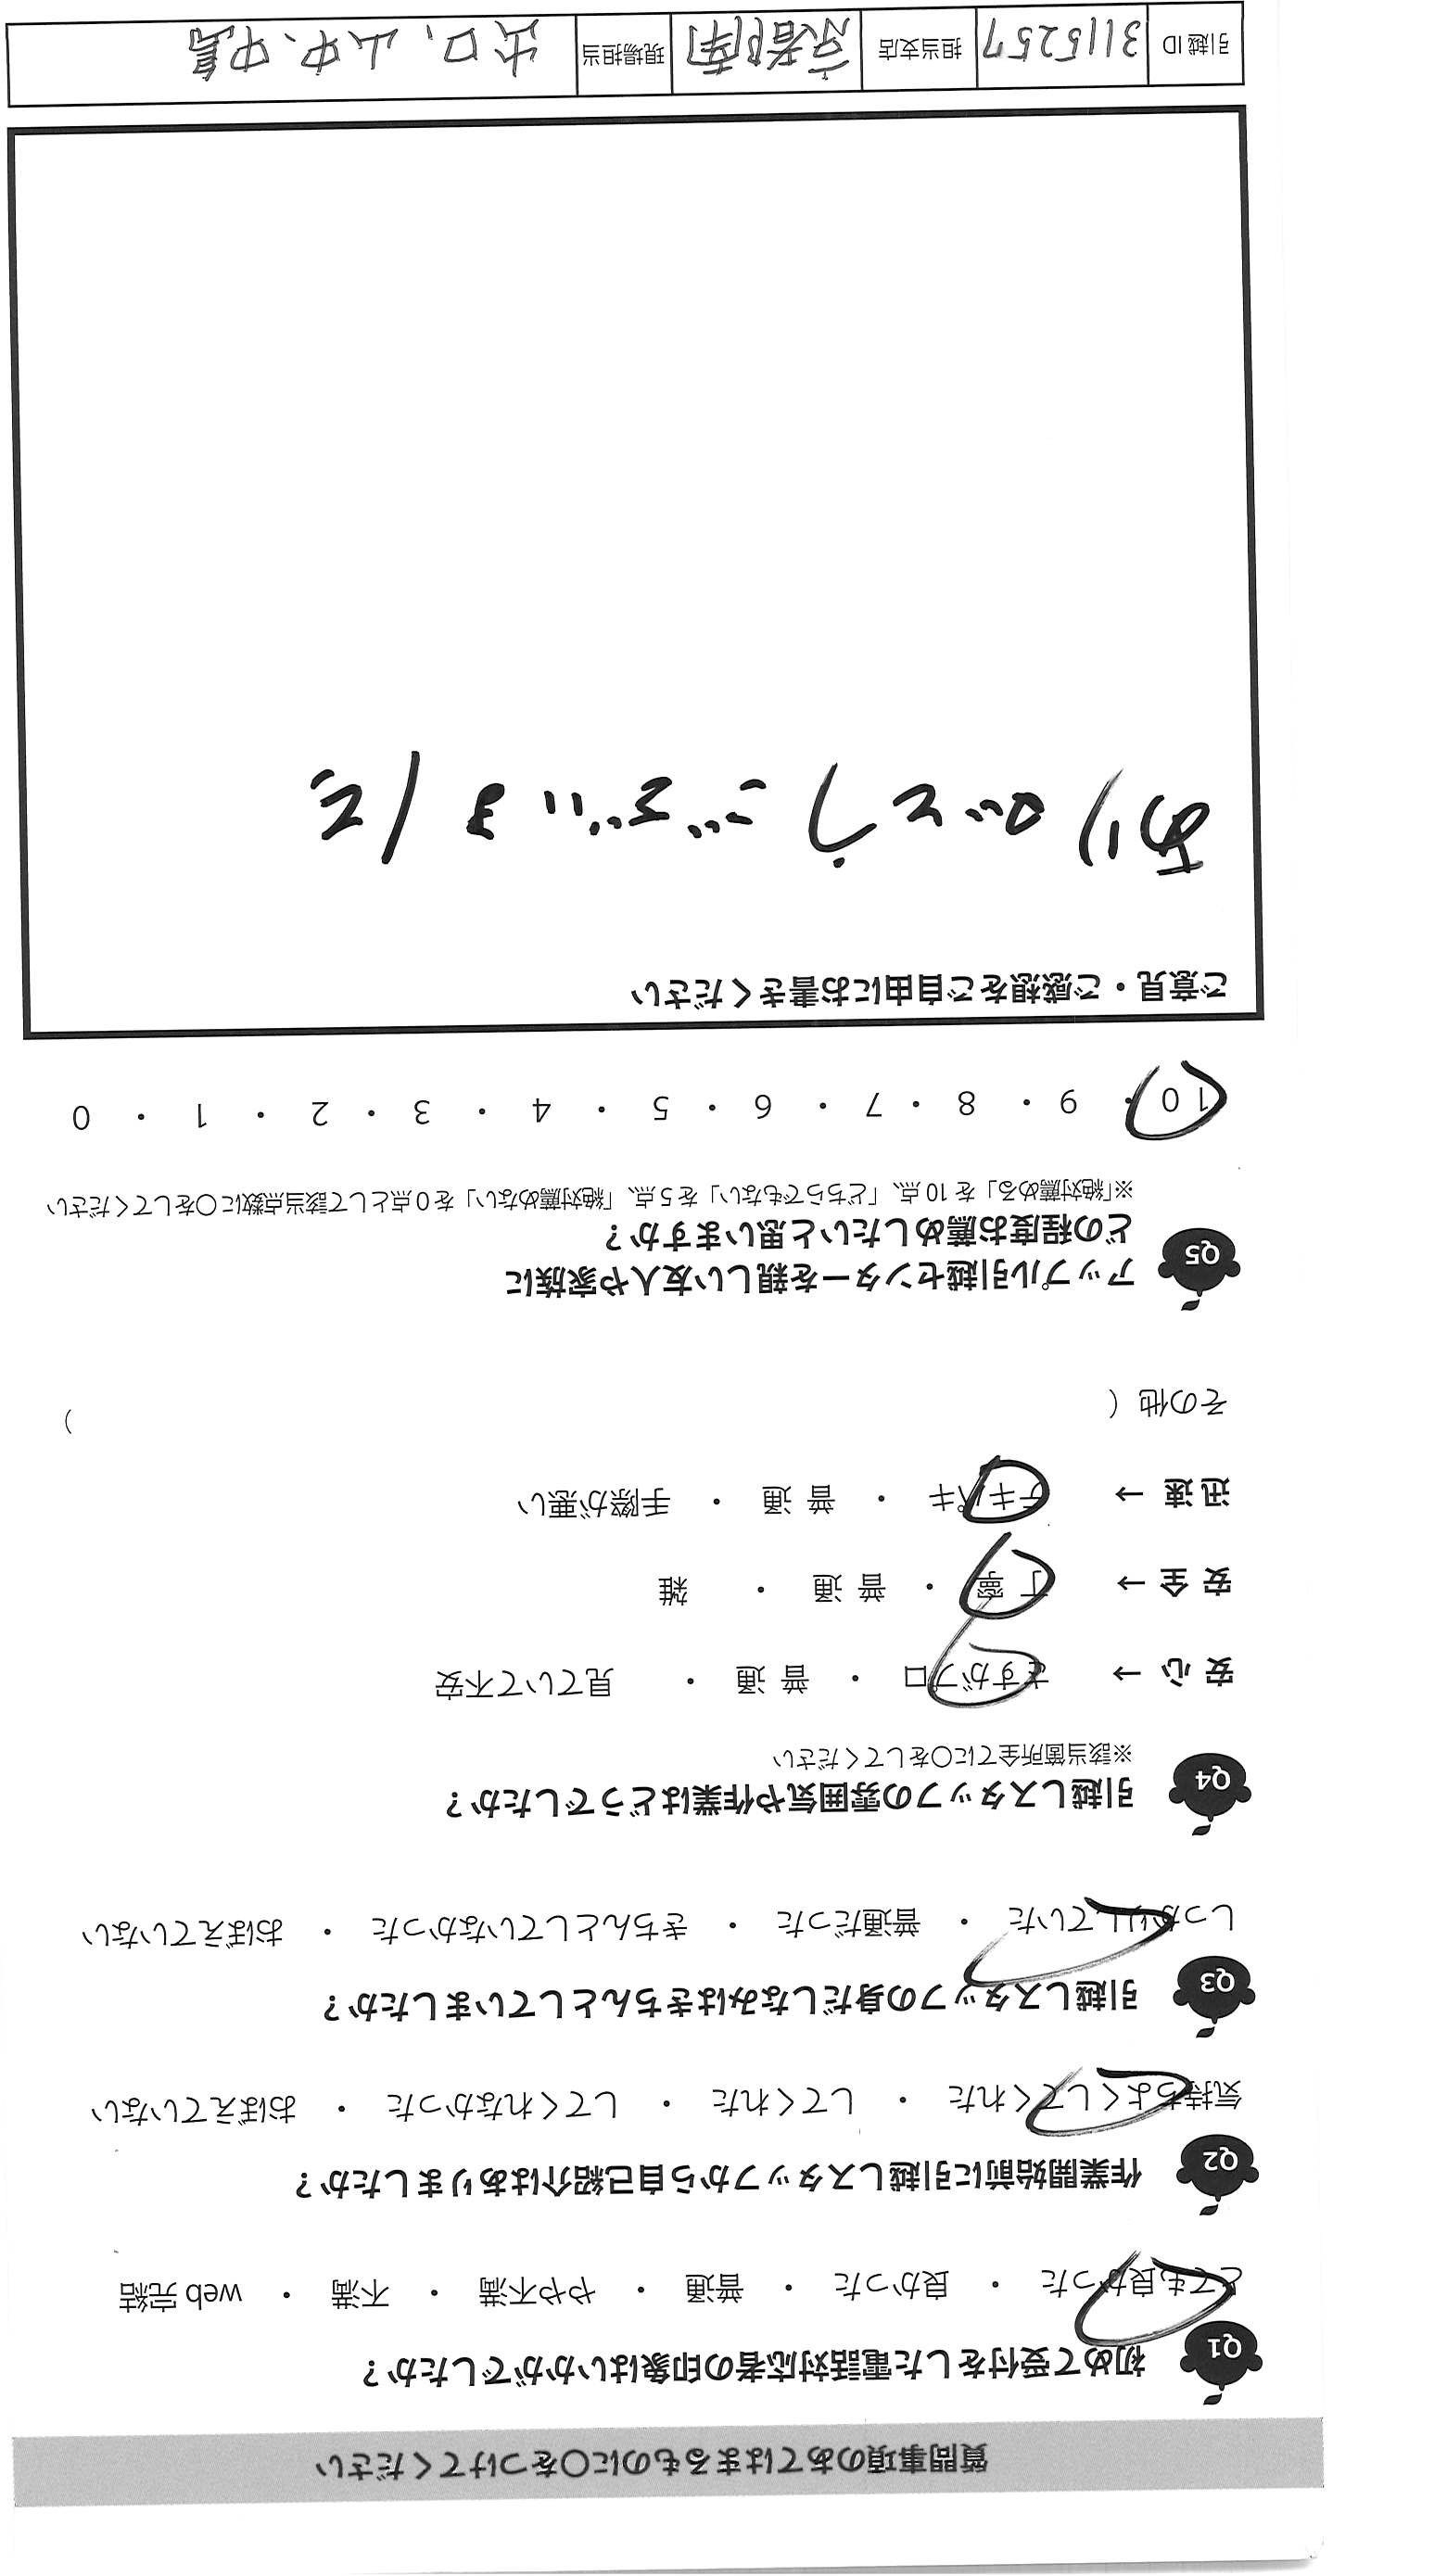 質問事項のあてはまるものに〇をつけてください
Q1 初めて受付をした電話対応者の印象はいかがでしたか？
とても良かった ・ 良かった ・ 普通 ・ やや不満 ・ 不満 ・ web 完結
Q2 作業開始前に引越しスタッフから自己紹介はありましたか？
気持ちよくしてくれた ・ してくれた ・ してくれなかった ・ おぼえていない
Q3 引越しスタッフの身だしなみはきちんとしていましたか？
しっかりしていた ・ 普通だった ・ きちんとしていなかった ・ おぼえていない
Q4 引越しスタッフの雰囲気や作業はどうでしたか？
※該当箇所全てに〇をしてください
安 心 → さすがプロ ・ 普 通 ・ 見ていて不安
安 全 → 丁 寧 ・ 普 通 ・ 雑
迅 速 → テキパキ ・ 普 通 ・ 手際が悪い
その他（ ）
Q5 アップル引越センターを親しい友人や家族に
どの程度お薦めしたいと思いますか？
※「絶対薦める」を 10 点、「どちらでもない」を 5 点、「絶対薦めない」を 0 点として該当点数に〇をしてください
10 ・ 9 ・ 8 ・ 7 ・ 6 ・ 5 ・ 4 ・ 3 ・ 2 ・ 1 ・ 0
ご意見・ご感想をご自由にお書きください
ありがとうございました
引越 ID 3115257 担当支店 京都南 現場担当 出口、山中、中島